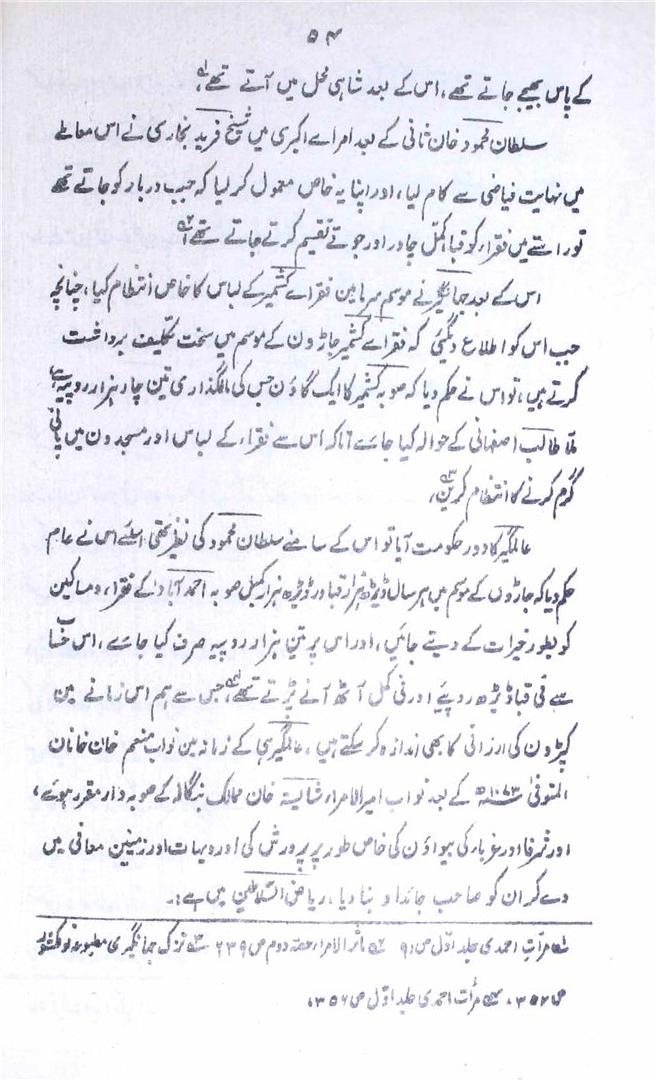 ۵۴
کے پاس بھیجے جاتے تھے، اس کے بعد شاہی محل میں آتے تھے لہ
سلطان محمود خان ثانی کے بعد امراے اکبری میں شیخ فرید بخاری نے اس معاملے
میں نہایت فیاضی سے کام لیا، اور اپنا یہ خاص معمول کر لیا کہ جب دربار کو جاتے تھے
تو راستے میں فقراء کو قبا، کمّل چادر اور جوتے تقسیم کرتے جاتے تھے ۲ہ
اس کے بعد جہانگیر نے موسم سرما مین فقراے کشمیر کے لباس کا خاص انتظام کیا، چنانچہ
جب اس کو اطلاع دیگئی کہ فقراے کشمیر جاڑون کے موسم میں سخت تکلیف برداشت
کرتے ہیں، تو اس نے حکم دیا کہ صوبہ کشمیر کا ایک گاؤن جس کی مالگذاری تین چار ہزار روپیہ ہے
ملّا طالب اصفہانی کے حوالہ کیا جائے تاکہ اس سے فقراء کے لباس اور مسجدون میں پانی
گرم کرنے کا انتظام کرین ۳ہ
عالمگیر کا دور حکومت آیا تو اس کے سامنے سلطان محمود کی نظیر تھی اسلئے اس نے عام
حکم دیا کہ جاڑوں کے موسم میں ہر سال ڈیڑھ ہزار قبا اور ڈیڑھ ہزار کمبل صوبہ احمد آباد کے فقراء و مساکین
کو بطور خیرات کے دیتے جائیں، اور اس پر تین ہزار روپیہ صرف کیا جائے، اس حساب
سے فی قبا ڈیڑھ روپیے اور فی کمل آٹھ آنے پڑتے تھے ۴ہ جس سے ہم اس زمانے مین
کپڑون کی ارزانی کا بھی اندازہ کر سکتے ہیں، عالمگیری کے زمانہ مین نواب معظم خان خانان
المتوفی ۱۰۷۳ھ کے بعد نواب امیر الامراء شایستہ خان ممالک بنگالہ کے صوبہ دار مقرر ہوئے،
اور شرفا اور غربا کی بیواؤن کی خاص طور پر پرورش کی اور دیہات اور زمینین معافی میں
دے کر ان کو صاحب جائداد بنا دیا، ریاض السلاطین میں ہے :۔
لہ مرآت احمدی جلد اوّل ص ۹۱ ۲ہ مآثر الامراء حصہ دوم ص ۶۳۹ ۳ہ تزک جہانگیری مطبوعہ نولکشور
ص ۳۵۲، ۴ہ مرأت احمدی جلد اوّل ص ۳۵۶،